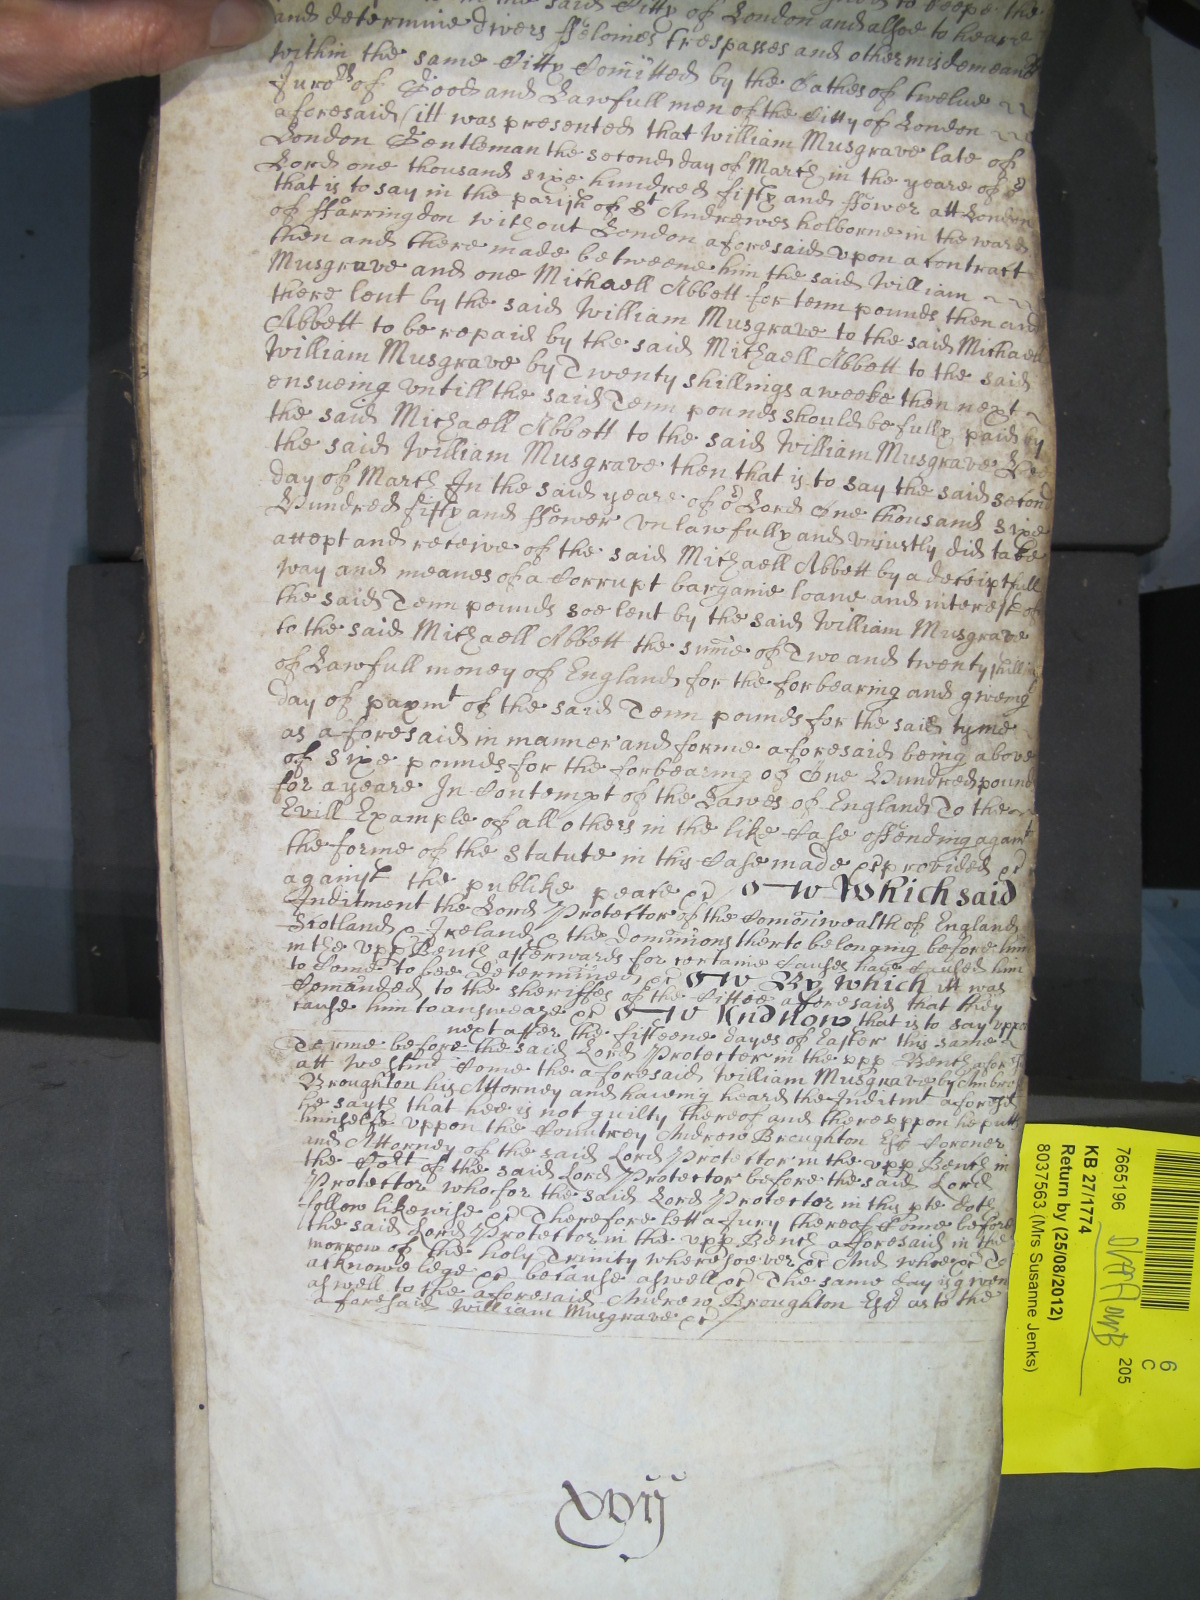 in the said Citty of London and alsoe to heare
and determine divers ffelonies trespasses and other misdemeanors
within the same Citty Comitted by the Oathes of twelue
Juro.rs of Good and Lawfull men of the Citty of London
aforesaid itt was presented that William Musgrave late of
London Gentleman the second day of March in the yeare of or
Lord one thousand sixe hundred fifty and ffower att London
that is to say in the parish of St Andrewes holborne in the ward
of ffarringdon without London aforesaid vpon a Contract
then and there made betweene him the said William
Musgrave and one Michaell Abbett for tenn pounds then and
there lent by the said William Musgrave to the said Michaell
Abbett to be repaid by the said Michaell Abbett to the said
William Musgrave by Twenty shillings a weeke then next
ensueing vntill the said Tenn pounds should be fully paid by
the said Michaell Abbett to the said William Musgrave Hee
the said William Musgrave then that is to say the said second
day of March In the said yeare of or Lord One thousand sixe
Hundred fifty and ffower vnlawfully and vniustly did take
accept and receive of the said Michaell Abbett by a deceiptfull
way and meanes of a Corrupt bargaine loane and interest of
the said Tenn pounds soe lent by the said William Musgrave
to the said Michaell Abbett the sume of Two and twenty shillings
of Lawfull money of England for the forbearing and giveing
day of paymt of the said Tenn pounds for the said tyme
as aforesaid in manner and forme aforesaid being above
of sixe pounds for the forbearing of One Hundred pounds
for a yeare In Contempt of the Lawes of England To the
Evill Example of all others in the like Case offending against
the forme of the Statute in this Case made & provided &c
against the publike peace &c Which said
Inditment the Lord Protector of the Comonwealth of England
Scotland & Ireland & the Dominions therto belonging before him
in the vpp Bench afterwards for certaine Causes have Caused him
to Come to bee determined &c By which itt was
Comanded to the sheriffes of the Cittie aforesaid that they
cause him to answeare &c And now that is to say vppon
next after the fifteene dayes of Easter this same
Terme before the said Lord Protector in the vpp Bench afores
att Westmr Come the aforesaid William Musgrave by Ambro
Broughton his Attorney and haveing heard the Inditmt aforesd
he sayth that hee is not guilty thereof and therevppon he putts
himselfe vppon the Countrey Andrew Broughton Esq Coroner
and Attorney of the said Lord Protector in the vpp Bench in
the Cort of the said Lord Protector before the said Lord
Protector who for the said Lord Protector in this pte doth
follow likewise &c Therefore lett a Jury thereof Come before
the said Lord Protector in the vpp Bench aforesaid in the
morrow of the holy Trinity wheresoever &c And who &c To
acknowelege &c because aswell &c The same day is given
aswell to the aforesaid Andrew Broughton Esq as to the
aforesaid William Musgrave &c
xvij
7665196
KB 27/1774
Return by (25/08/2012)
8037563 (Mrs Susanne Jenks)
6
C
205